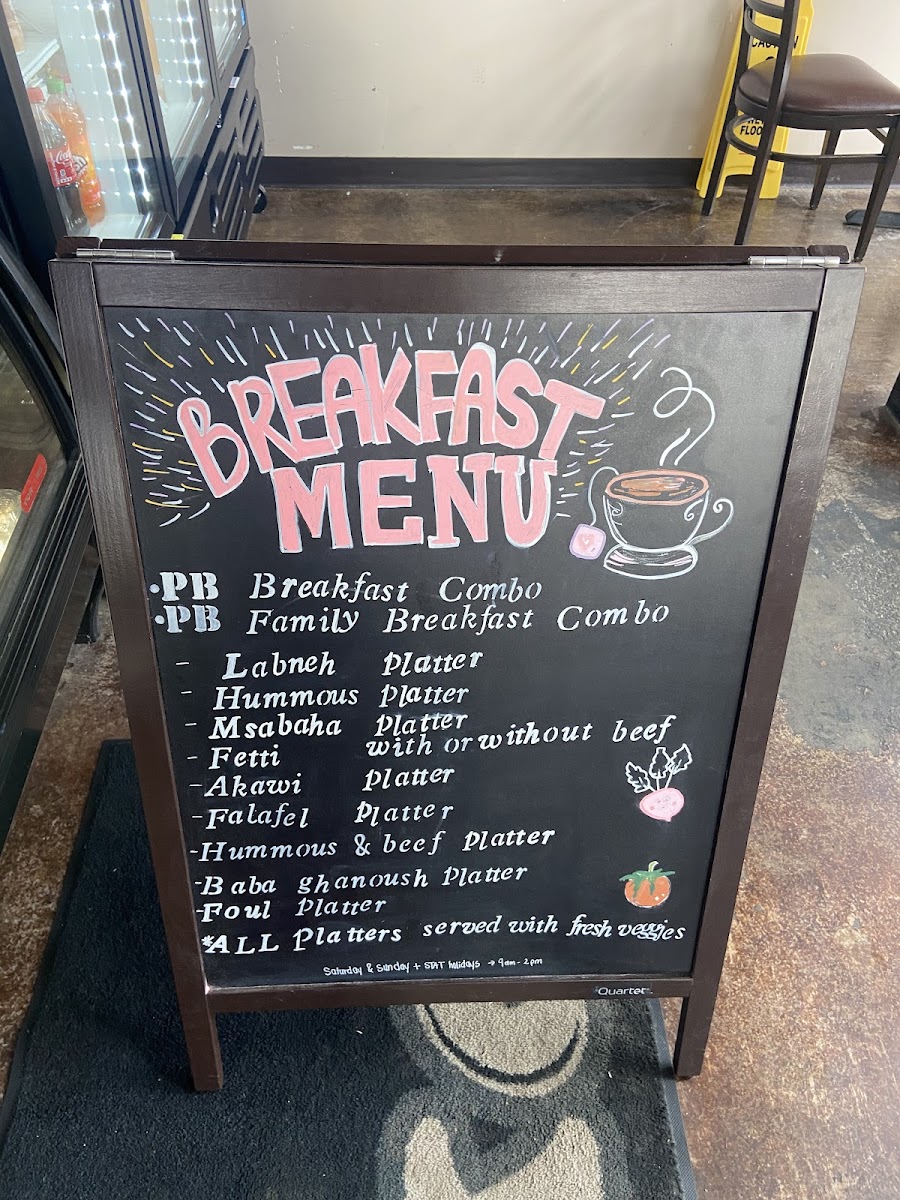 CAUTION
WET
FLOOR
BREAKFAST
MENU
·PB Breakfast Combo
·PB Family Breakfast Combo
- Labneh Platter
- Hummous Platter
- Msabaha Platter
- Fetti with or without beef
- Akawi Platter
- Falafel Platter
- Hummous & beef Platter
- Baba ghanoush Platter
- Foul Platter
*ALL Platters served with fresh veggies
Saturday & Sunday + STAT holidays → 9am - 2pm
Quartet